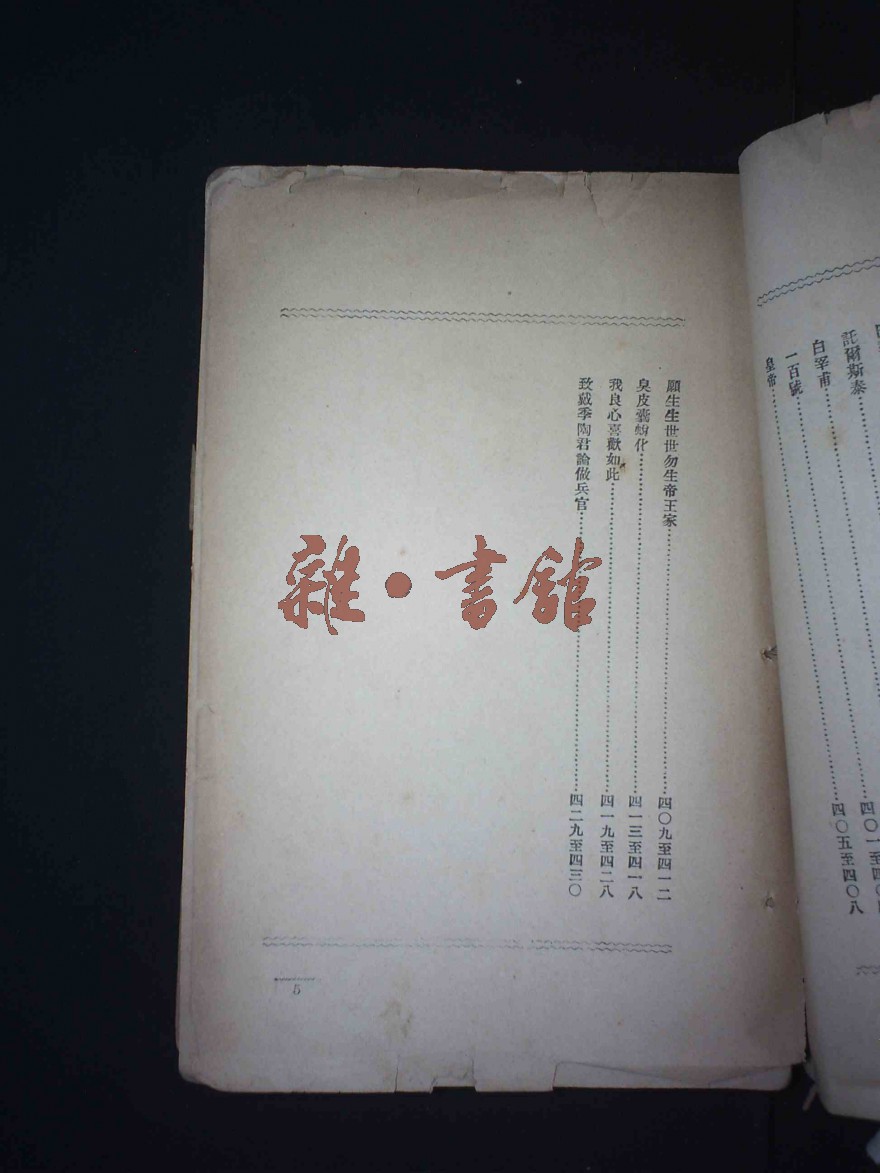 託爾斯泰
四〇一至四〇
白宰甫
一百號
皇帝
四〇五至四〇八
願生生世世勿生帝王家
四〇九至四一二
臭皮囊蛻化
四一三至四一八
我良心喜歡如此
四一九至四二八
致戴季陶君論做兵官
四二九至四三〇
5
雜·書館